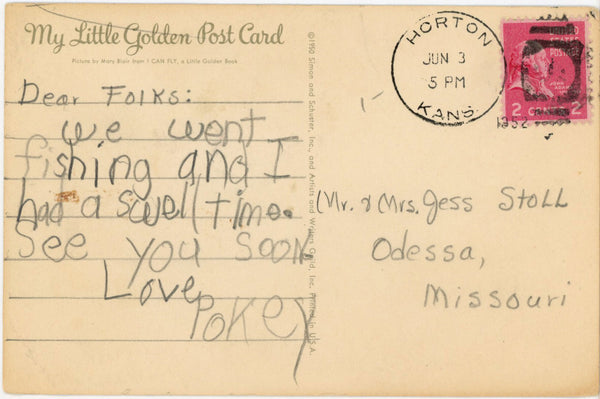 My Little Golden Post Card
Picture by Mary Blair from I CAN FLY, a Little Golden Book
Dear Folks:
we went
fishing and I
had a swell time.
See you soon,
Love,
Pokey
©1950 Simon and Schuster, Inc., and Artists and Writers Guild, Inc. Printed in U.S.A.
HORTON
JUN 3
5 PM
KANS
1952
2 2
Mr. & Mrs. Jess Stoll
Odessa,
Missouri